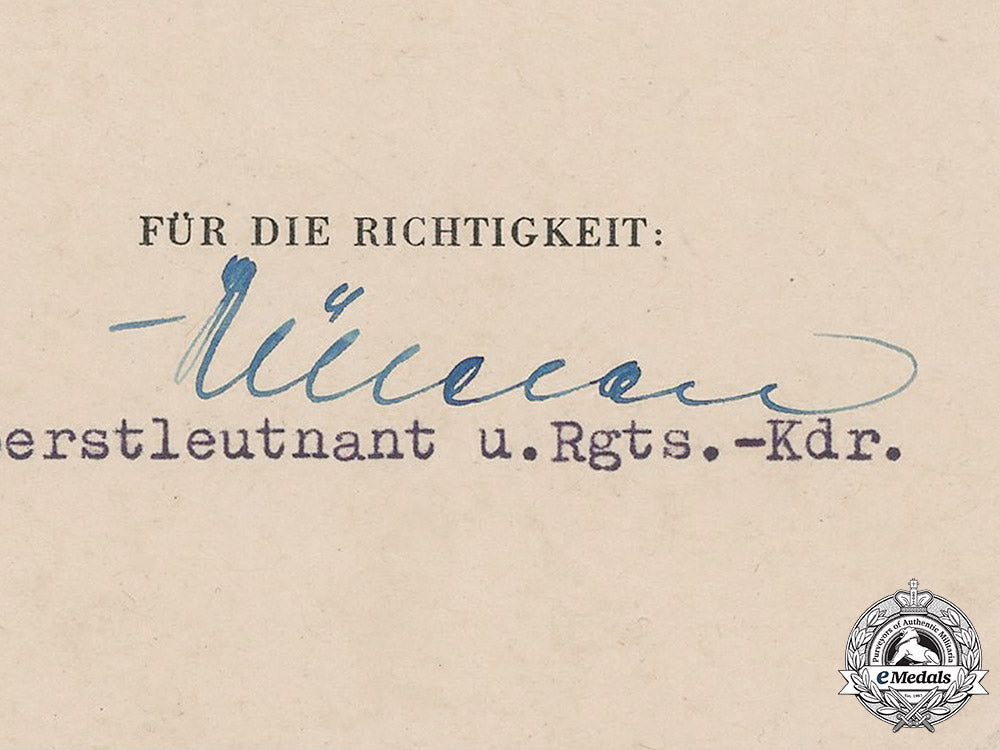 FÜR DIE RICHTIGKEIT:
erstleutnant u.Rgts.-Kdr.
Purveyors of Authentic Militaria
eMedals